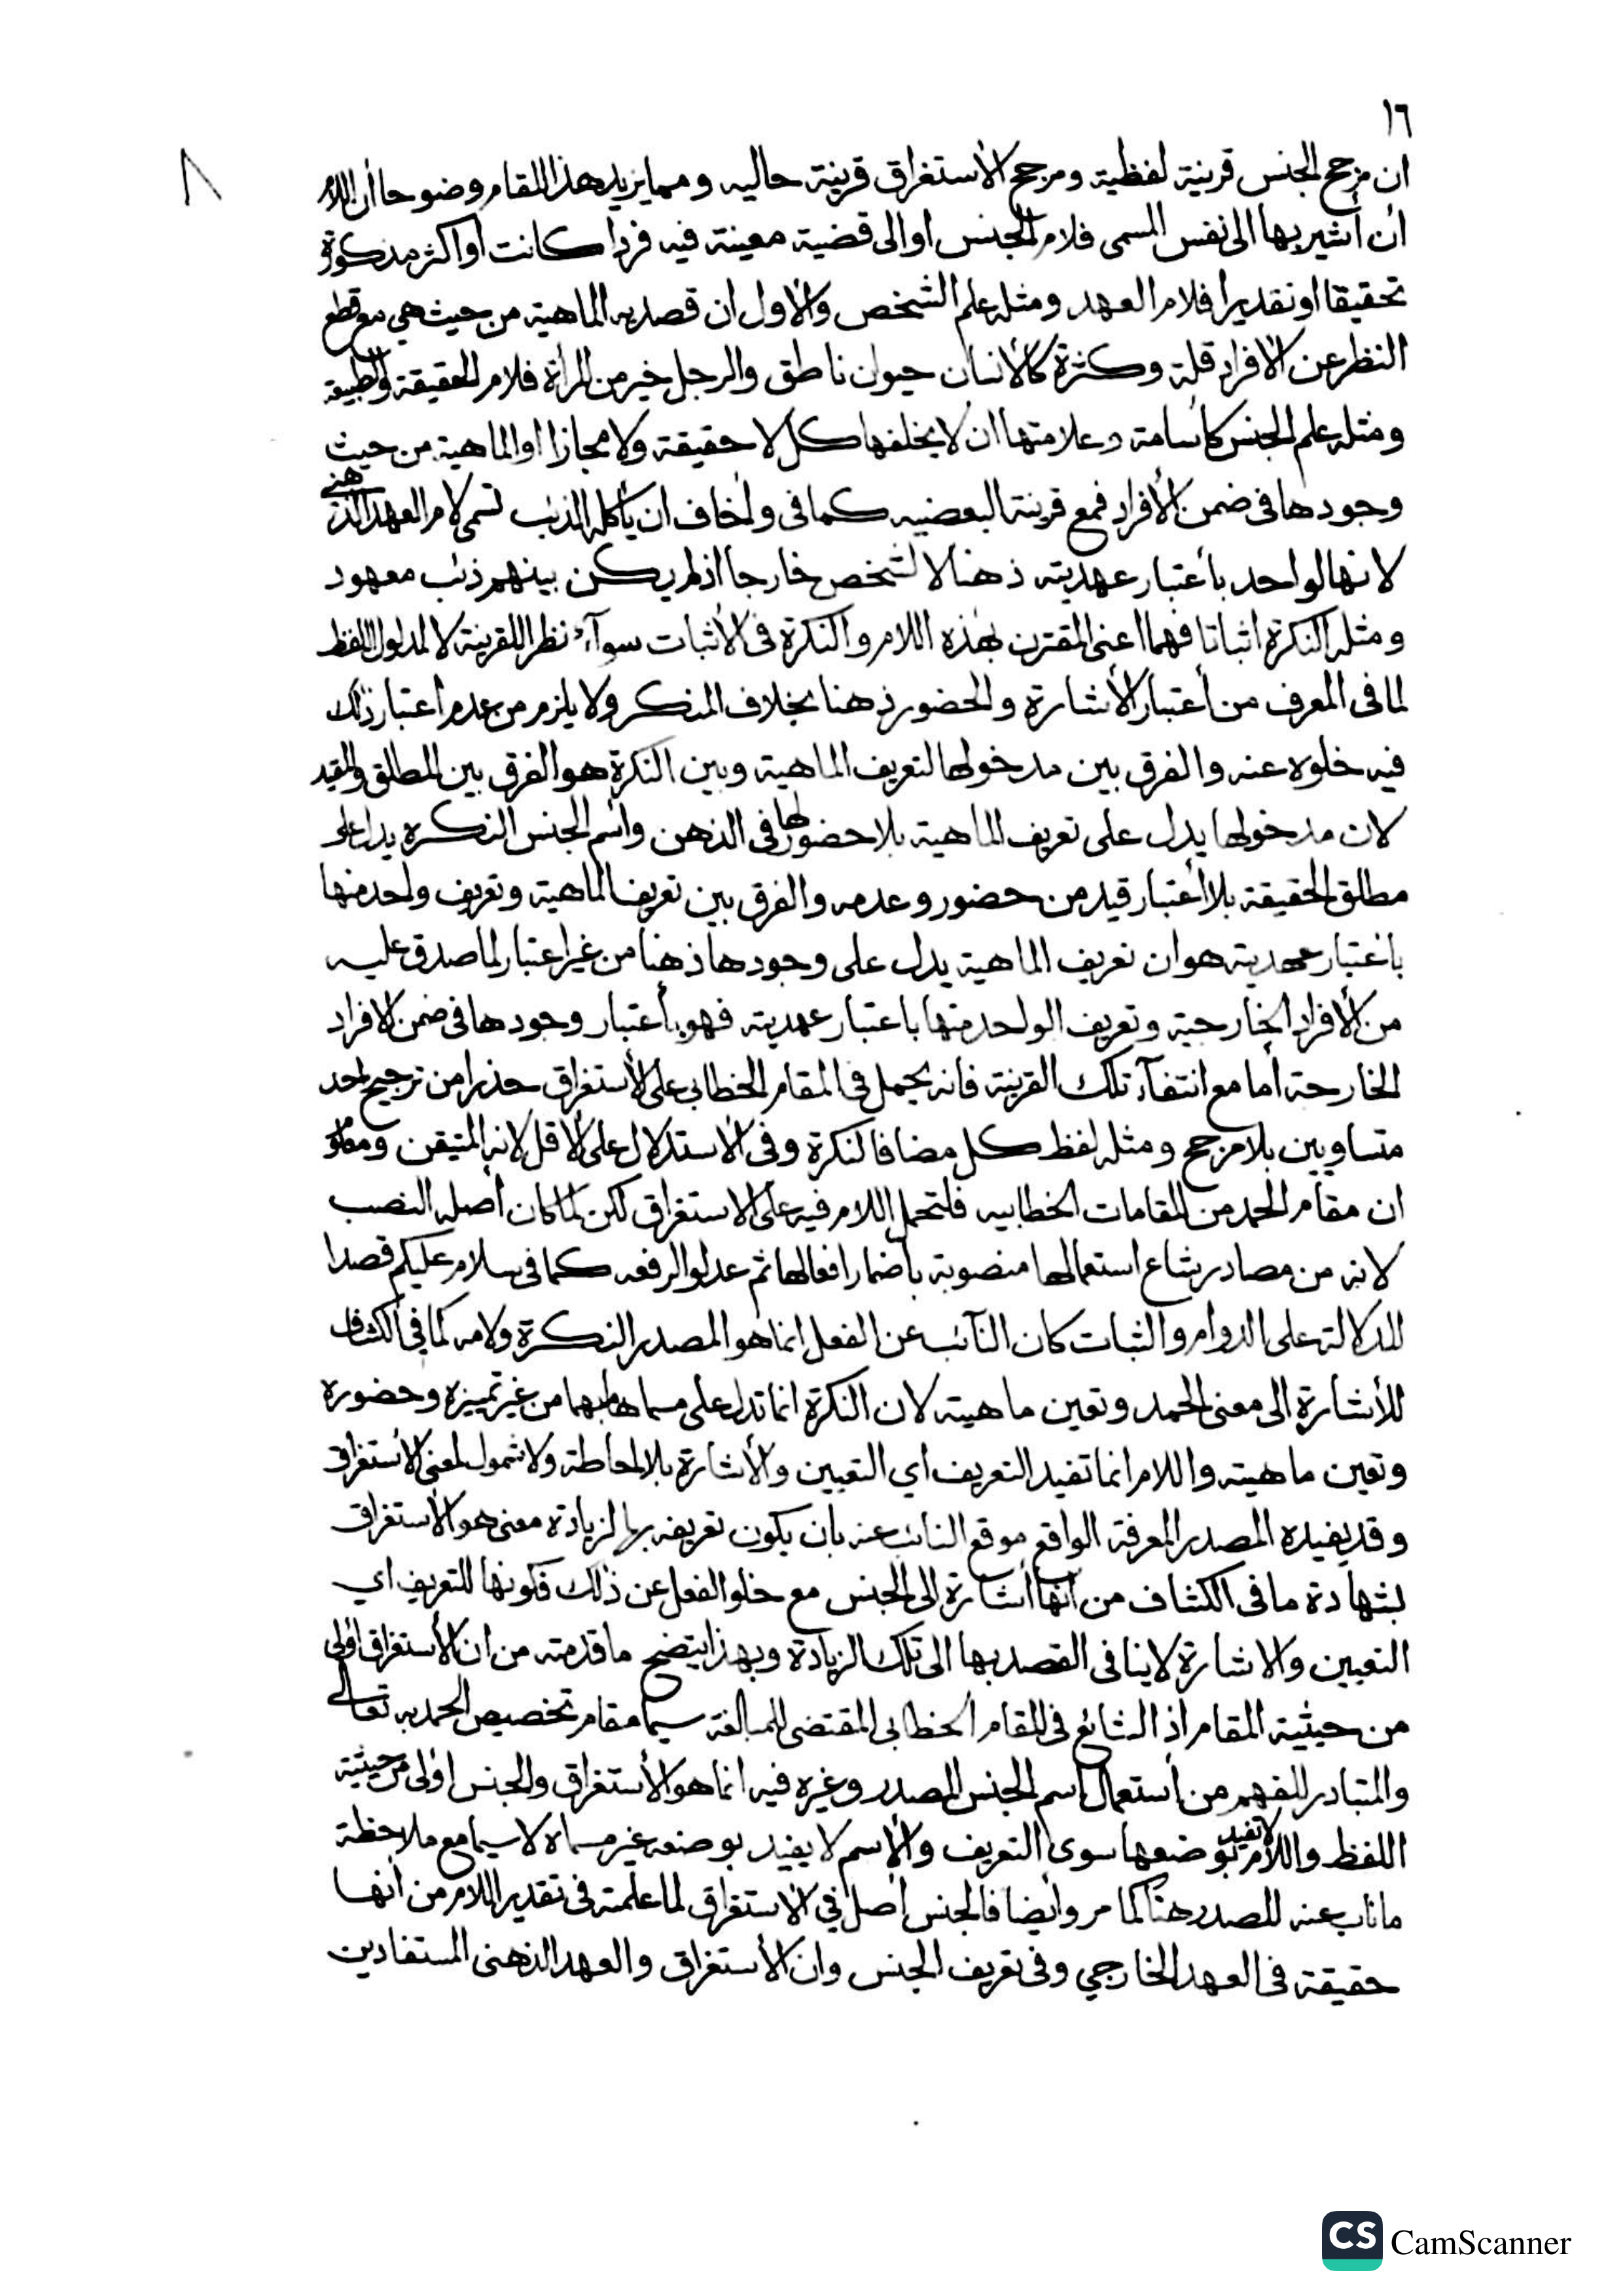 ١٦
٨
ان مرجح الجنس قرينة لفظية ومرجح الأستغراق قرينة حاليه ومما يزيد هذا المقام وضوحا أن اللام
أن أشير بها الى نفس المسمى فلام الجنس او الى قضية معينة فيه فردا كانت أو اكثر مذكورة
تحقيقا او تقديرا فلام العهد ومثله علم الشخص والاول ان قصد به الماهية من حيث هي مع قطع
النظر عن الافراد قلة وكثرة كالأنسان حيوان ناطق والرجل خير من المرأة فلام الحقيقة والطبيعة
ومثله علم الجنس كأسامة وعلامتها ان لا يخلفها كل لا حقيقة ولا مجازا او الماهية من حيث
وجودها في ضمن الأفراد فمع قرينة البعضيه كما في واخاف ان يأكله الذئب تسمى لام العهد الذهنى
لانها لواحد بأعتبار عهديته ذهنا لا لشخص خارجا اذ لم يكن بينهم ذئب معهود
ومثله النكرة اثباتا فهما اعنى المقترن بهذه اللام والنكرة في الأثبات سوآء نظرا للقرينة لا لمدلول اللفظ
لما في المعرف من أعتبار الأشارة والحضور ذهنا بخلاف المنكر ولا يلزم من عدم اعتبار ذلك
فيه خلوه عنه والفرق بين مدخولها لتعريف الماهية وبين النكرة هو الفرق بين المطلق والمقيد
لان مدخولها يدل على تعريف الماهية بلا حضورلها في الذهن وأسم الجنس النكره يدل على
مطلق الحقيقة بلا أعتبار قيد من حضور وعدمه والفرق بين تعريف الماهية وتعريف واحد منها
باعتبار عهديته هو ان تعريف الماهية يدل على وجودها ذهنا من غير اعتبار لما صدق عليه
من الأفراد الخارجية وتعريف الواحد منها باعتبار عهديته فهو بأعتبار وجودها في ضمن الافراد
الخارجة أما مع انتفآء تلك القرينة فانه يحمل في المقام الخطابي على الأستغراق حذرا من ترجيح احد
متساويين بلا مرجح ومثله لفظ كل مضافا لنكرة وفي الاستدلال على الأقل لانه المتيقن
ان مقام الحمد من المقامات الخطابيه فلتحمل اللام فيه على الاستغراق لكن لما كان أصله النصب
لانه من مصادر شاع استعمالها منصوبة بأضمار افعالها ثم عدلوا لرفعه كما في سلام عليكم قصدا
للدلالة على الدوام والثبات كان النآئب عن الفعل انما هو المصدر النكرة ولامه كما في الكشاف
للأشارة الى معنى الحمد وتعين ماهيته لان النكرة انما تدل على مسماها مبهما من غير تمييزه وحضوره
وتعين ماهيته واللام انما تفيد التعريف اي التعيين والأشارة بلا احاطة ولا شمول لمعنى الأستغراق
وقد يفيده المصدر المعرفة الواقع موقع النائب عنه بان يكون تعريفه بها لزيادة معنى هو الأستغراق
بشهادة ما في الكشاف من أنها أشارة الى الجنس مع خلو الفعل عن ذلك فكونها للتعريف اي
التعيين والاشارة لا ينافى القصد بها الى تلك الزيادة وبهذا يتضح ما قدمته من ان الأستغراق اولى
من حيثية المقام أذ الشائع في المقام الخطابى المقتضى للمبالغة سيما مقام تخصيص الحمد به تعالى
والمتبادر للفهم من أستعمال اسم الجنس المصدر وغيره فيه انما هو الأستغراق والجنس اولى من حيثية
اللفظ واللام لا تفيد بوضعها سوى التعريف والأسم لا يفيد بوضعه غير مسماه لا سيما مع ملاحظة
ما ناب عنه المصدر هنا كما مر وأيضا فالجنس أصل في الاستغراق لما علمته في تقدير اللام من أنها
حقيقة في العهد الخارجي وفي تعريف الجنس وان الأستغراق والعهد الذهنى المستفادين
CS CamScanner